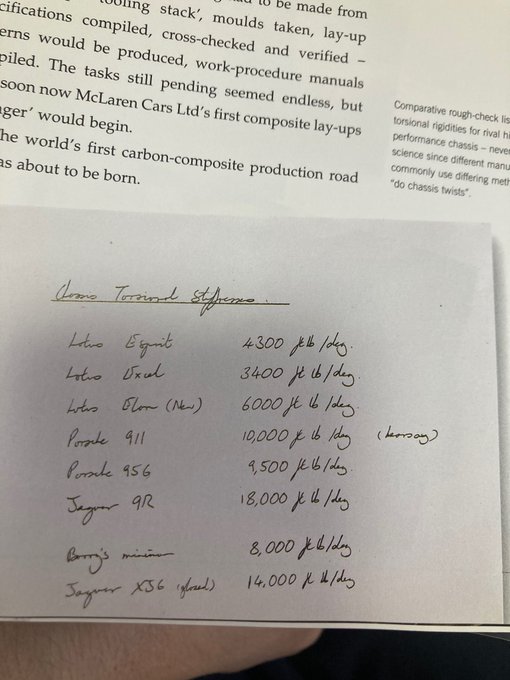 'tooling stack', moulds taken, lay-up
cifications compiled, cross-checked and verified –
erns would be produced, work-procedure manuals
piled. The tasks still pending seemed endless, but
soon now McLaren Cars Ltd's first composite lay-ups
ger' would begin.
he world's first carbon-composite production road
as about to be born.
Comparative rough-check lis
torsional rigidities for rival hi
performance chassis – neve
science since different manu
commonly use differing meth
"do chassis twists".
Chassis Torsional Stiffnesses.
Lotus Esprit 4300 ft lb/deg.
Lotus Excel 3400 ft lb/deg.
Lotus Elan (New) 6000 ft lb/deg.
Porsche 911 10,000 ft lb/deg (hearsay)
Porsche 956 9,500 ft lb/deg.
Jaguar 9R 18,000 ft lb/deg
Barry's minimum 8,000 ft lb/deg
Jaguar XJ6 14,000 ft lb/deg